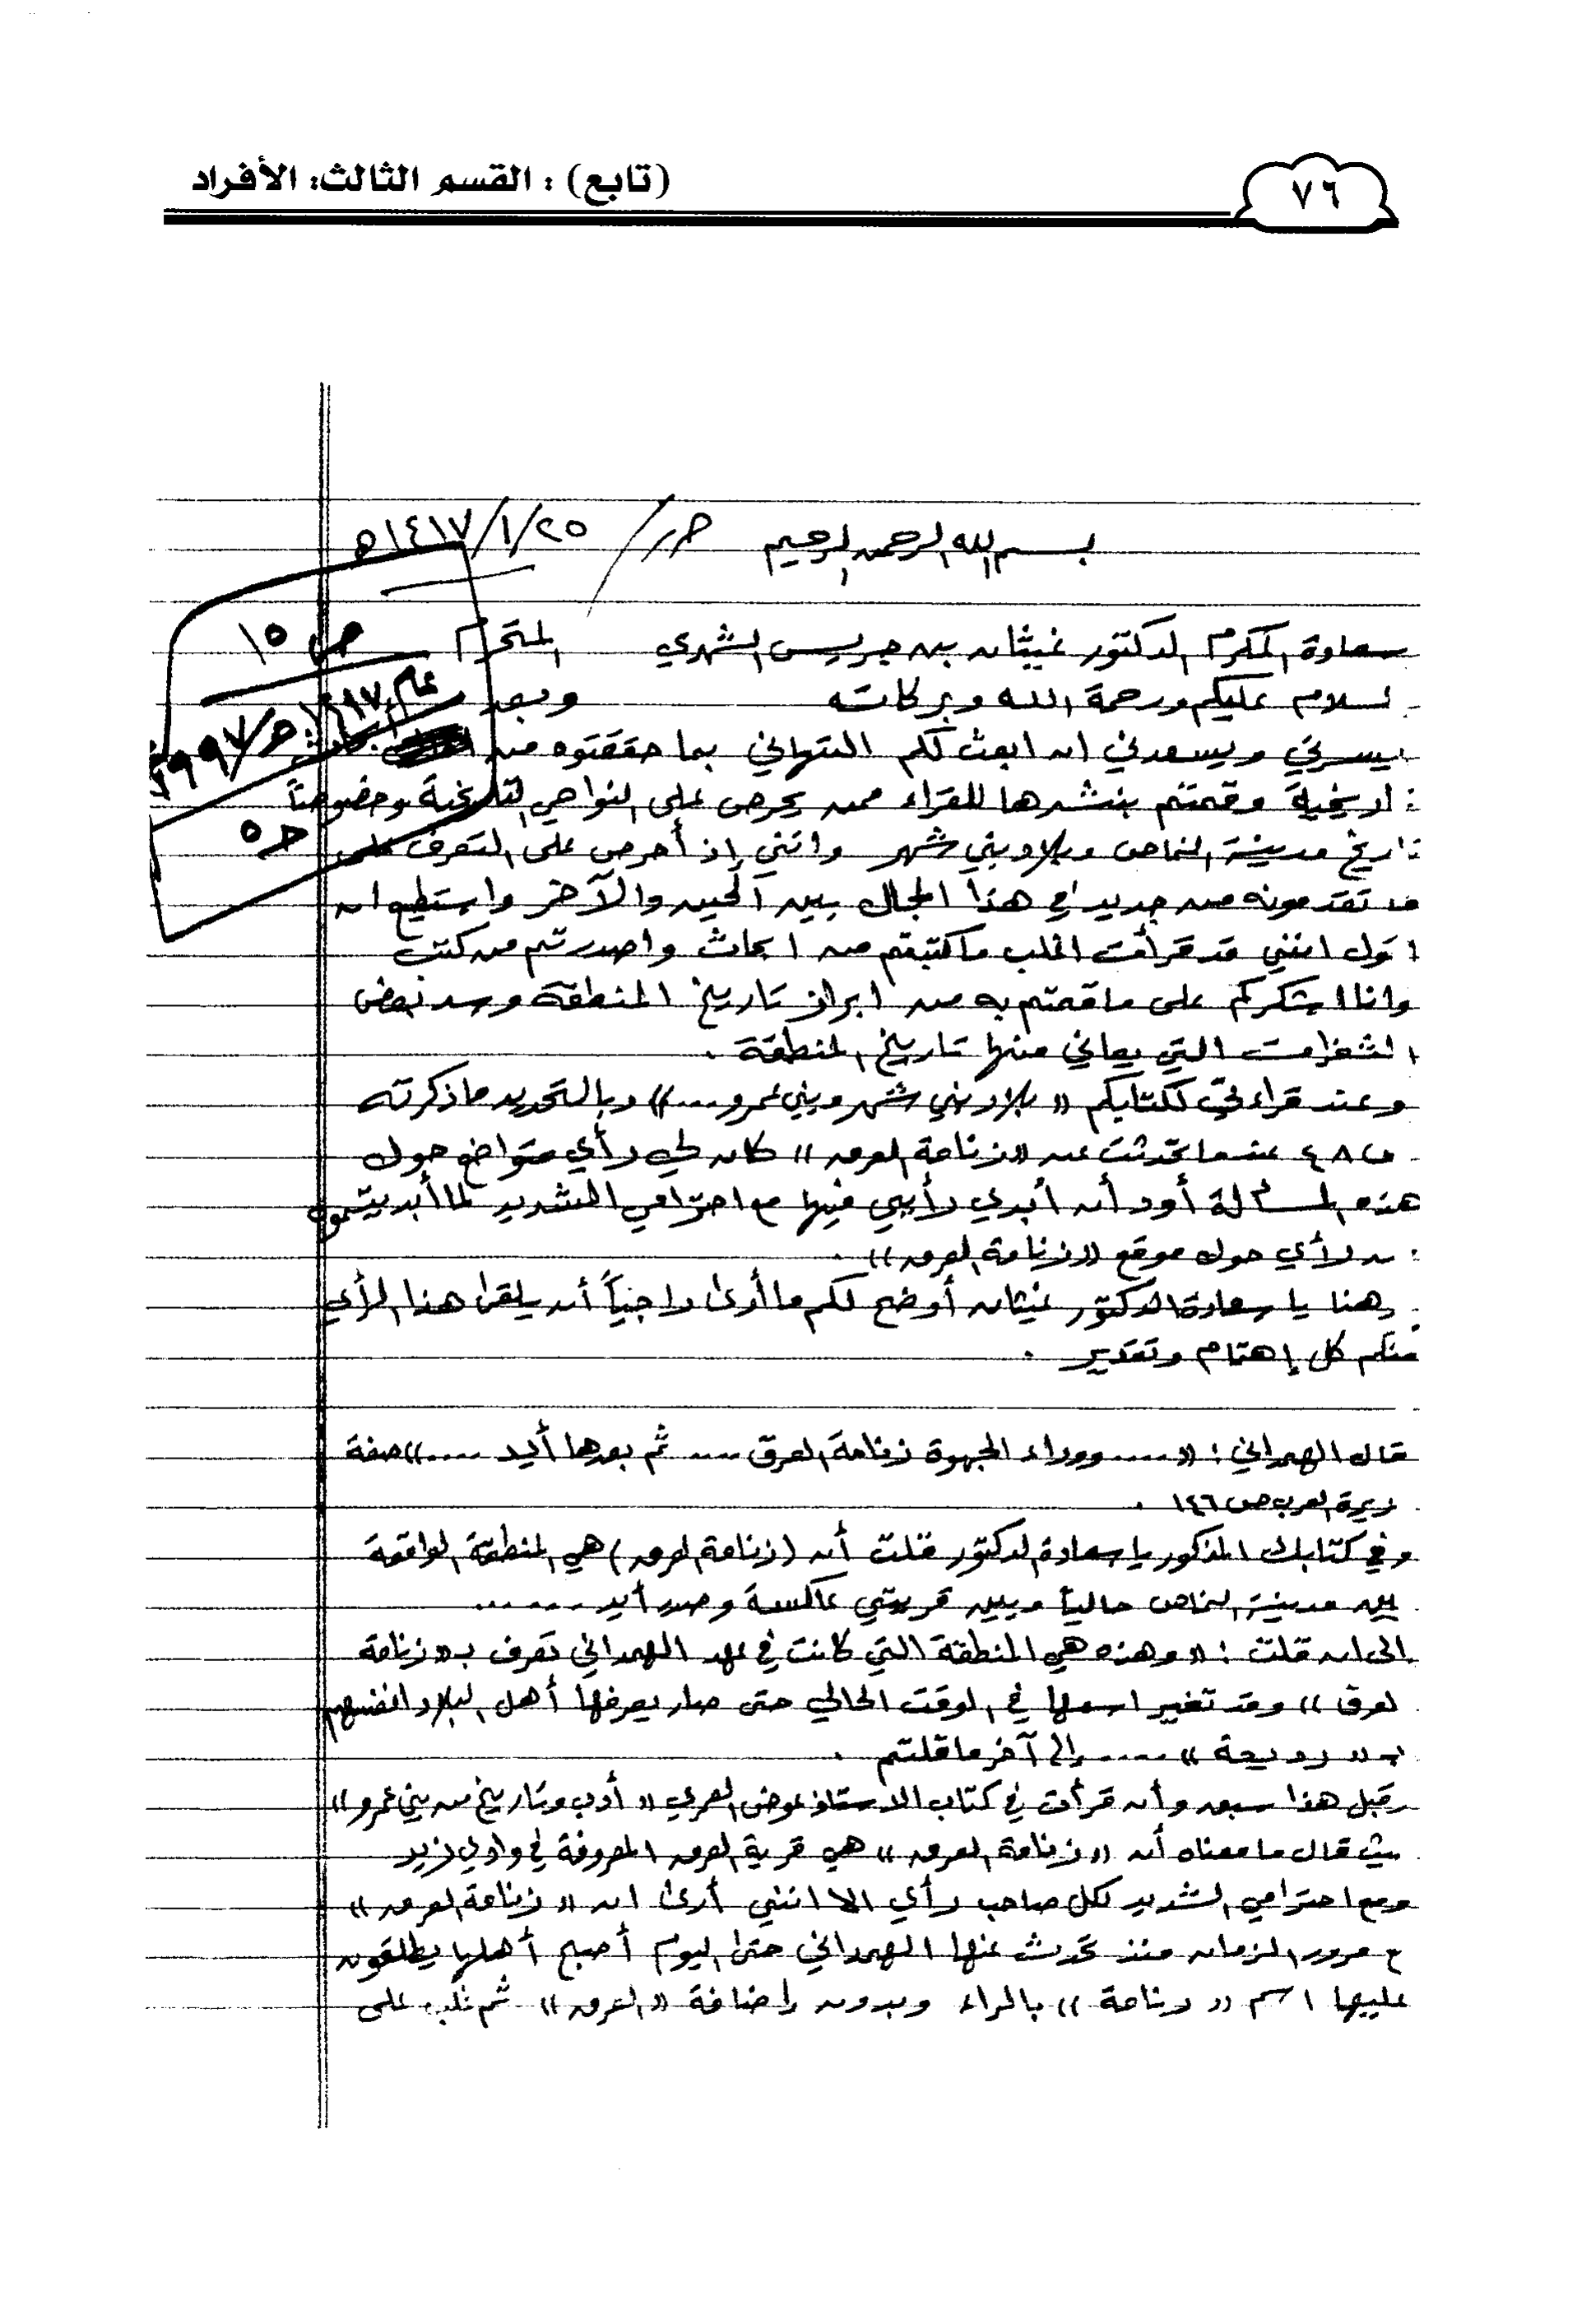 (تابع) : القسم الثالث: الأفراد
٧٦
بسم الله الرحمن الرحيم حرر/ ١٤١٧/١/٢٥هـ
سعادة المكرم الدكتور غيثان بن جريس الشهري المحترم
لسلام عليكم ورحمة الله وبركاته وبعد
يسرني ويسعدني ان ابعث لكم التهاني بما حققتوه من ابحاث
اريخية وقمتم بنشرها للقراء ممن يحرص على النواحي التاريخية وخصوصاً
تاريخ مدينة النماص وبلاد بني شهر وانني إذ أحرص على التعرف على
ما تقدمونه من جديد في هذا المجال بين الحين والآخر واستطيع ان
اقول انني قد قرأت اغلب ما كتبتم من ابحاث واصدرتم من كتب
وانا اشكركم على ما قمتم به من ابراز تاريخ المنطقة وسد بعض
الثغرات التي يعاني منها تاريخ المنطقة .
وعند قراءتي لكتابكم «بلاد بني شهر وبني عمرو...» وبالتحديد ما ذكرته
ص٤٨ عندما تحدثت عن «زنامة العرق» كان لي رأي متواضع حول
هذه المسألة أود أن أبدي رأيي فيها مع احترامي الشديد لما أبديتموه
من رأي حول موقع «زنامة العرق» .
وهنا يا سعادة الدكتور غيثان أوضح لكم ما أرى راجياً أن يلقى هذا الرأي
منكم كل إهتمام وتقدير .
قال الهمداني : «.... ووراء الجهوة زنامة العرق .... ثم بعدها أيد ....» صفة
زيرة العرب ص ١٤٦ .
وفي كتابك المذكور يا سعادة الدكتور قلت أن (زنامة العرق) هي المنطقة الواقعة
بين مدينة النماص حالياً وبين قريتي عاكسة وصدر أيد ......
الى ان قلت : «وهذه هي المنطقة التي كانت في عهد الهمداني تعرف بـ«زنامة
لعرق» وقد تغير اسمها في الوقت الحالي حتى صار يعرفها أهل البلاد انفسهم
بـ« رديحة » .... إلى آخر ما قلتم .
وقبل هذا سبق وأن قرأت في كتاب الاستاذ عوض العمري «أدب وتاريخ من بني عمرو»
حيث قال ما معناه أن «زنامة العرق» هي قرية العرق المعروفة في وادي زيد
ومع احترامي الشديد لكل صاحب رأي الا انني أرى ان «زنامة العرق»
ع مرور الزمان منذ تحدث عنها الهمداني حتى اليوم أصبح أهلها يطلقون
عليها اسم «رنامة» بالراء وبدون إضافة «العرق» ثم غلب على
ص ١٥
عام ١٤١٧هـ/١٩٩٧م
حـ٥